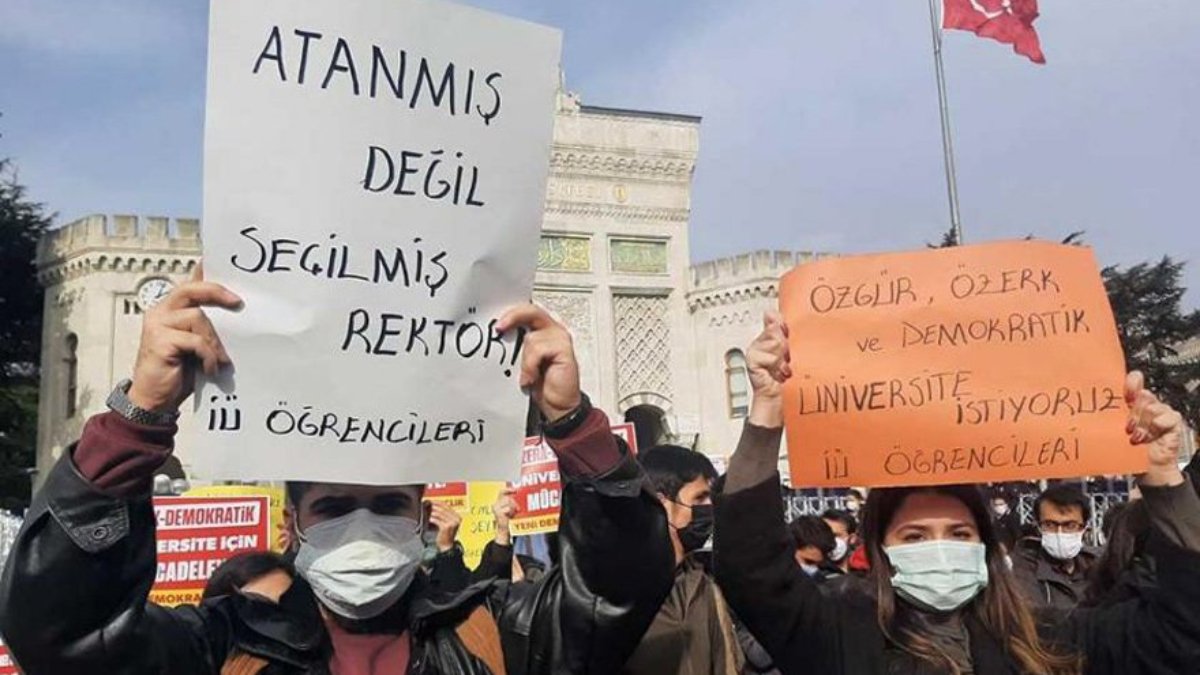 ATANMIŞ
DEĞİL
SEÇİLMİŞ
REKTÖR!
İÜ ÖĞRENCİLERİ
ÖZGÜR, ÖZERK
ve DEMOKRATİK
ÜNİVERSİTE
İSTİYORUZ
İÜ ÖĞRENCİLERİ
K-DEMOKRATİK
ERSİTE İÇİN
CADELE